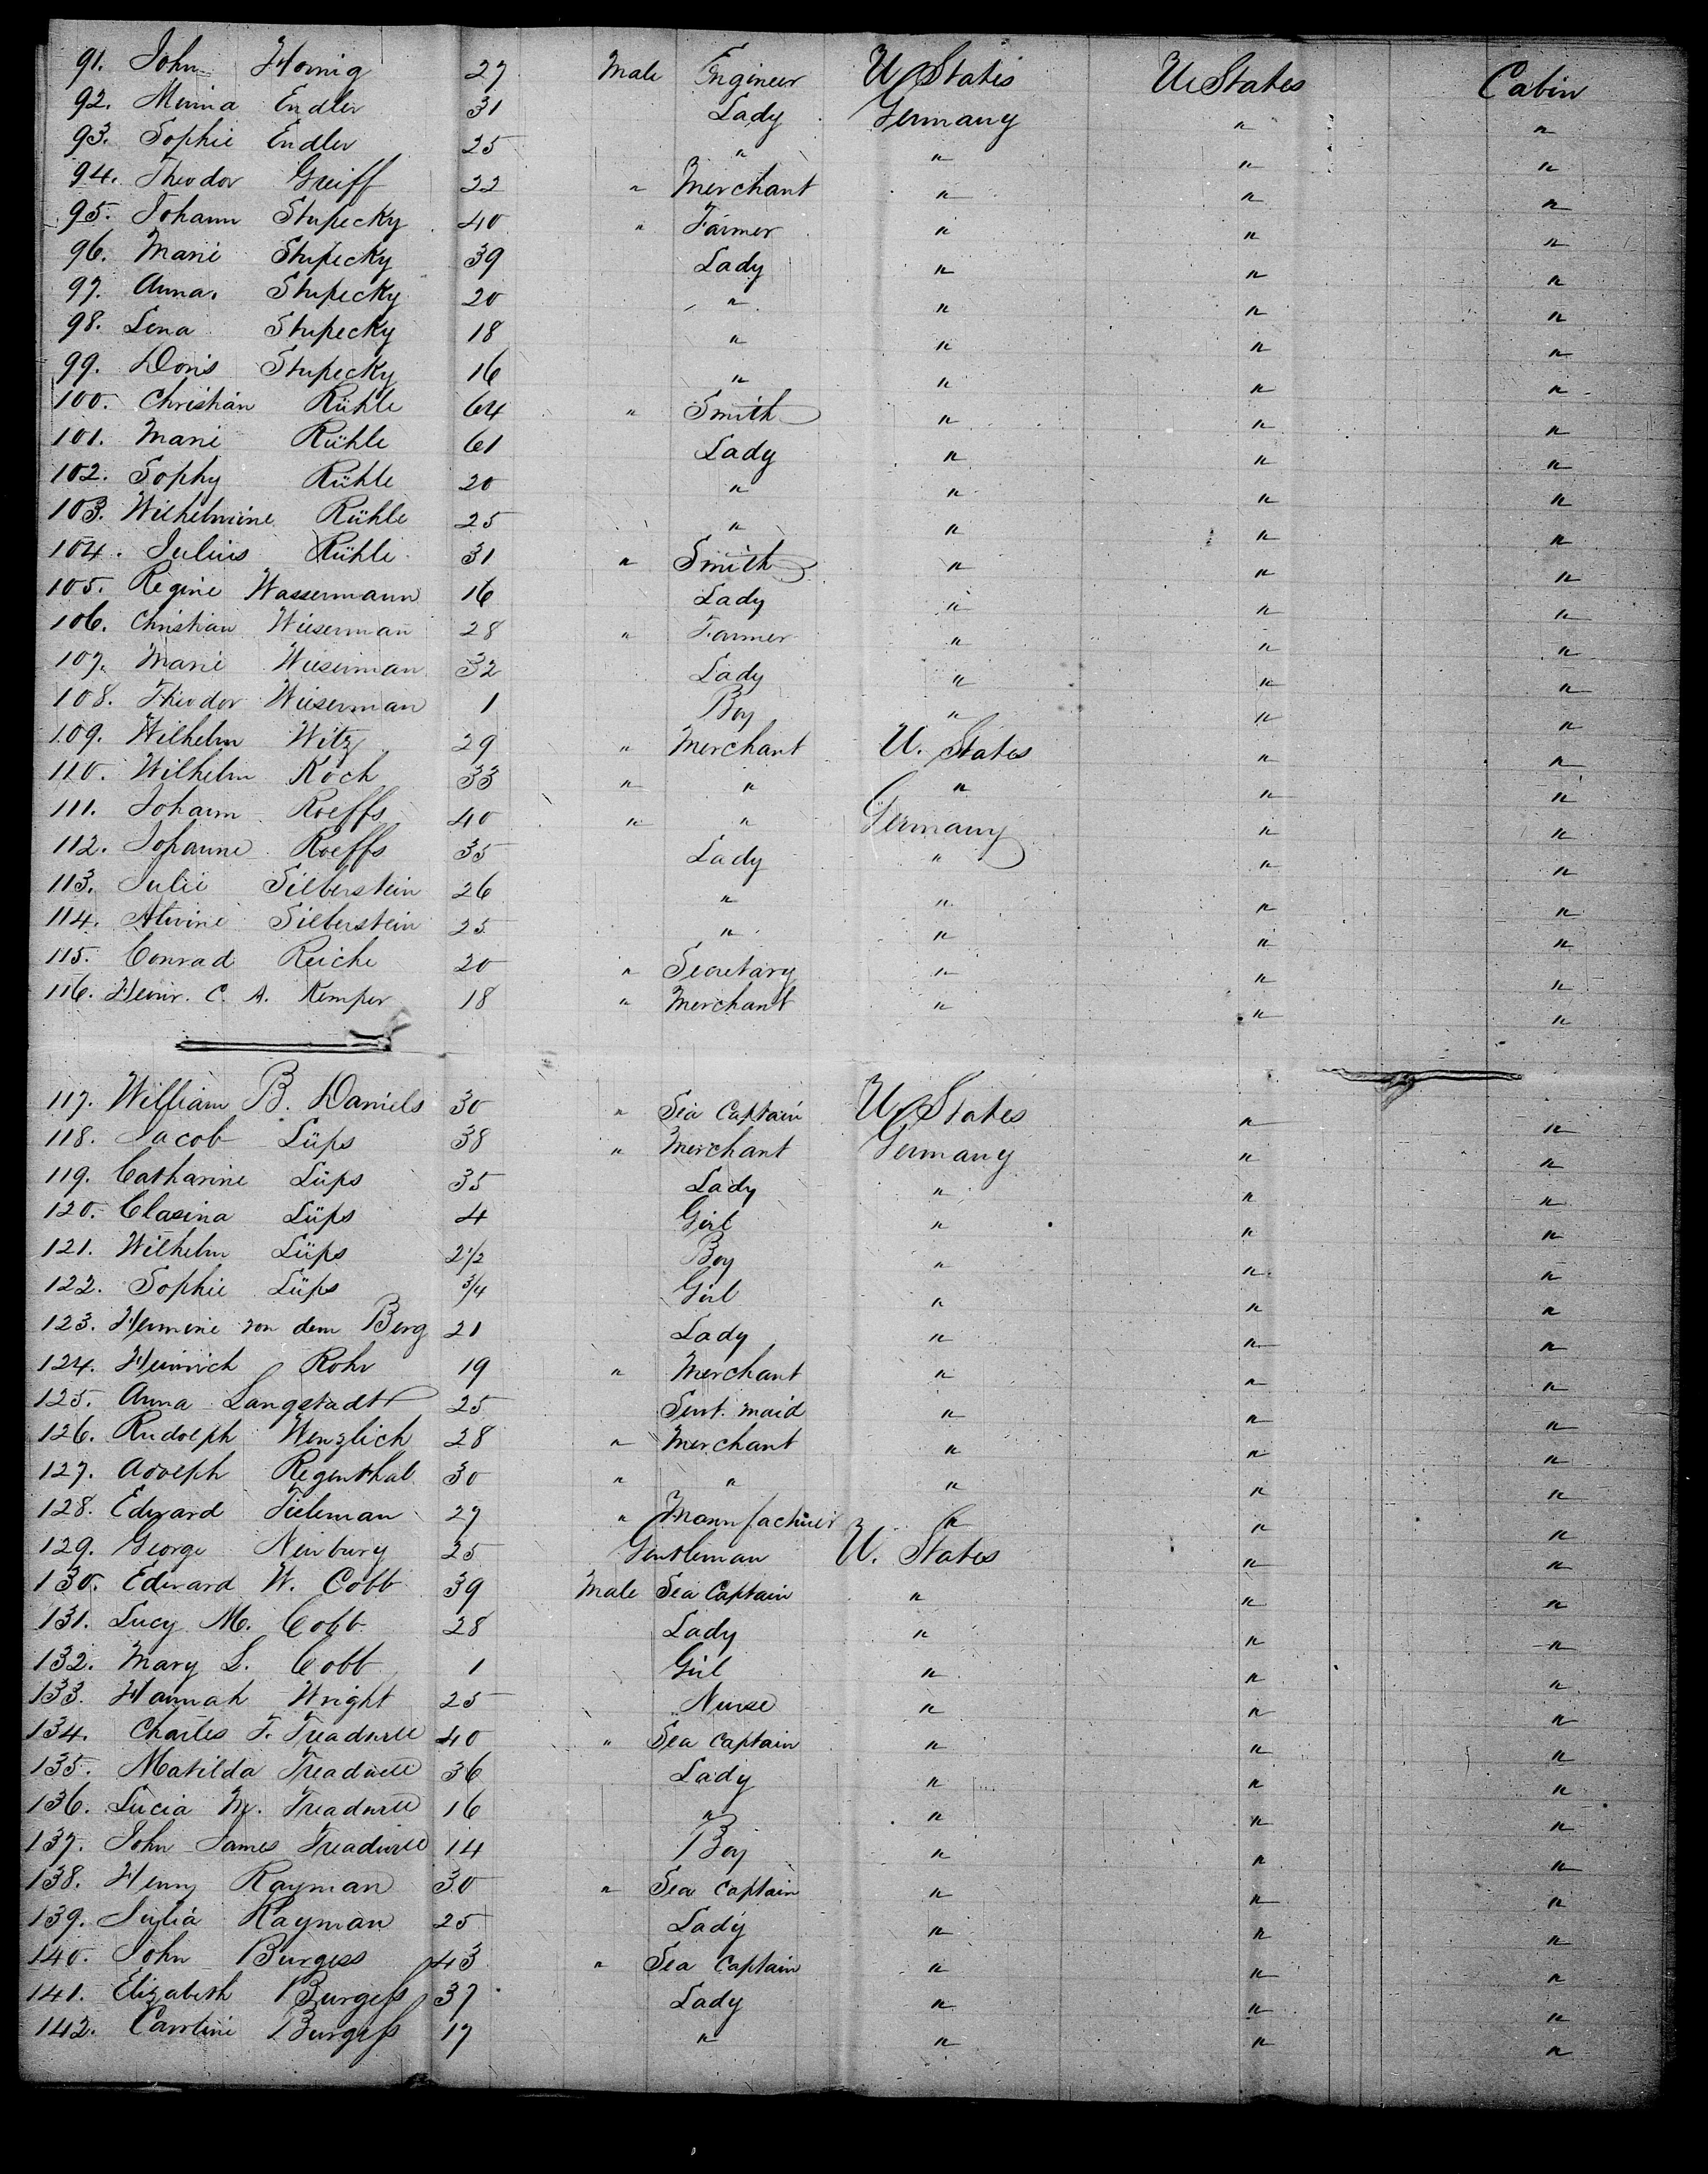 91. John Hornig 27 Male Engineer U. States U. States Cabin
92. Minna Endler 31 Lady Germany " "
93. Sophie Endler 25 " " " "
94. Theodor Greiff 22 " Merchant " " "
95. Johann Stupecky 40 " Farmer " " "
96. Marie Stupecky 39 Lady " " "
97. Anna Stupecky 20 " " " "
98. Lena Stupecky 18 " " " "
99. Doris Stupecky 16 " " " "
100. Christian Rühle 64 " Smith " " "
101. Marie Rühle 61 Lady " " "
102. Sophy Rühle 20 " " " "
103. Wilhelmine Rühle 25 " " " "
104. Julius Rühle 31 " Smith " " "
105. Regine Wassermann 16 Lady " " "
106. Christian Wieserman 28 " Farmer " " "
107. Marie Wieserman 32 Lady " " "
108. Theodor Wieserman 1 Boy " " "
109. Wilhelm Witz 29 " Merchant U. States " "
110. Wilhelm Koch 33 " " " " "
111. Johann Roeffs 40 " " Germany " "
112. Johanne Roeffs 35 Lady " " "
113. Julie Silberstein 26 " " " "
114. Alwine Silberstein 25 " " " "
115. Conrad Reiche 20 " Secretary " " "
116. Heinr. C. A. Kemper 18 " Merchant " " "
117. William B. Daniels 30 " Sea Captain U. States " "
118. Jacob Lüps 38 " Merchant Germany " "
119. Catharine Lüps 35 Lady " " "
120. Clasina Lüps 4 Girl " " "
121. Wilhelm Lüps 2 1/2 Boy " " "
122. Sophie Lüps 3/4 Girl " " "
123. Hermine von dem Berg 21 Lady " " "
124. Heinrich Rohr 19 " Merchant " " "
125. Anna Langstadt 25 Servt. maid " " "
126. Rudolph Wenzlich 28 " Merchant " " "
127. Adolph Regenthal 30 " " " " "
128. Edward Tieleman 27 " Manufacturer " " "
129. George Newbury 25 Gentleman U. States " "
130. Edward W. Cobb 39 Male Sea Captain " " "
131. Lucy M. Cobb 28 Lady " " "
132. Mary L. Cobb 1 Girl " " "
133. Hannah Wright 25 Nurse " " "
134. Charles F. Treadwell 40 " Sea Captain " " "
135. Matilda Treadwell 36 Lady " " "
136. Lucia M. Treadwell 16 " " " "
137. John James Treadwell 14 Boy " " "
138. Henry Rayman 30 " Sea Captain " " "
139. Julia Rayman 25 Lady " " "
140. John Burgess 43 " Sea Captain " " "
141. Elizabeth Burgess 37 Lady " " "
142. Caroline Burgess 17 " " " "